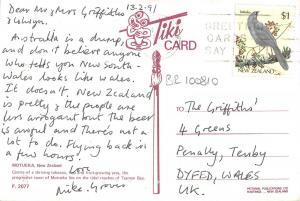 Dear Mr & Mrs Griffiths 13.2.91
& Huwyn.
Australia is a dump,
and don't believe anyone
who tells you New South
Wales looks like Wales.
It doesn't. New Zealand
is pretty & the people are
less arrogant but the beer
is awful and there's not a
lot to do. Flying back in
a few hours.
MOTUEKA, New Zealand
Gems of a shining tobacco, and fruit growing area, the
progressive town of Motueka lies on the tidal reaches of Tasman Bay.
P. 2077
Mike Groves
Tiki
CARD
GREETING
CARDS
SAY
$1
NEW ZEALAND
BR 100810
To:
The Griffiths'
4 Greens
Penally, Tenby
DYFED, WALES
UK.
PICTORIAL PUBLICATIONS LTD
HASTINGS - NEW ZEALAND